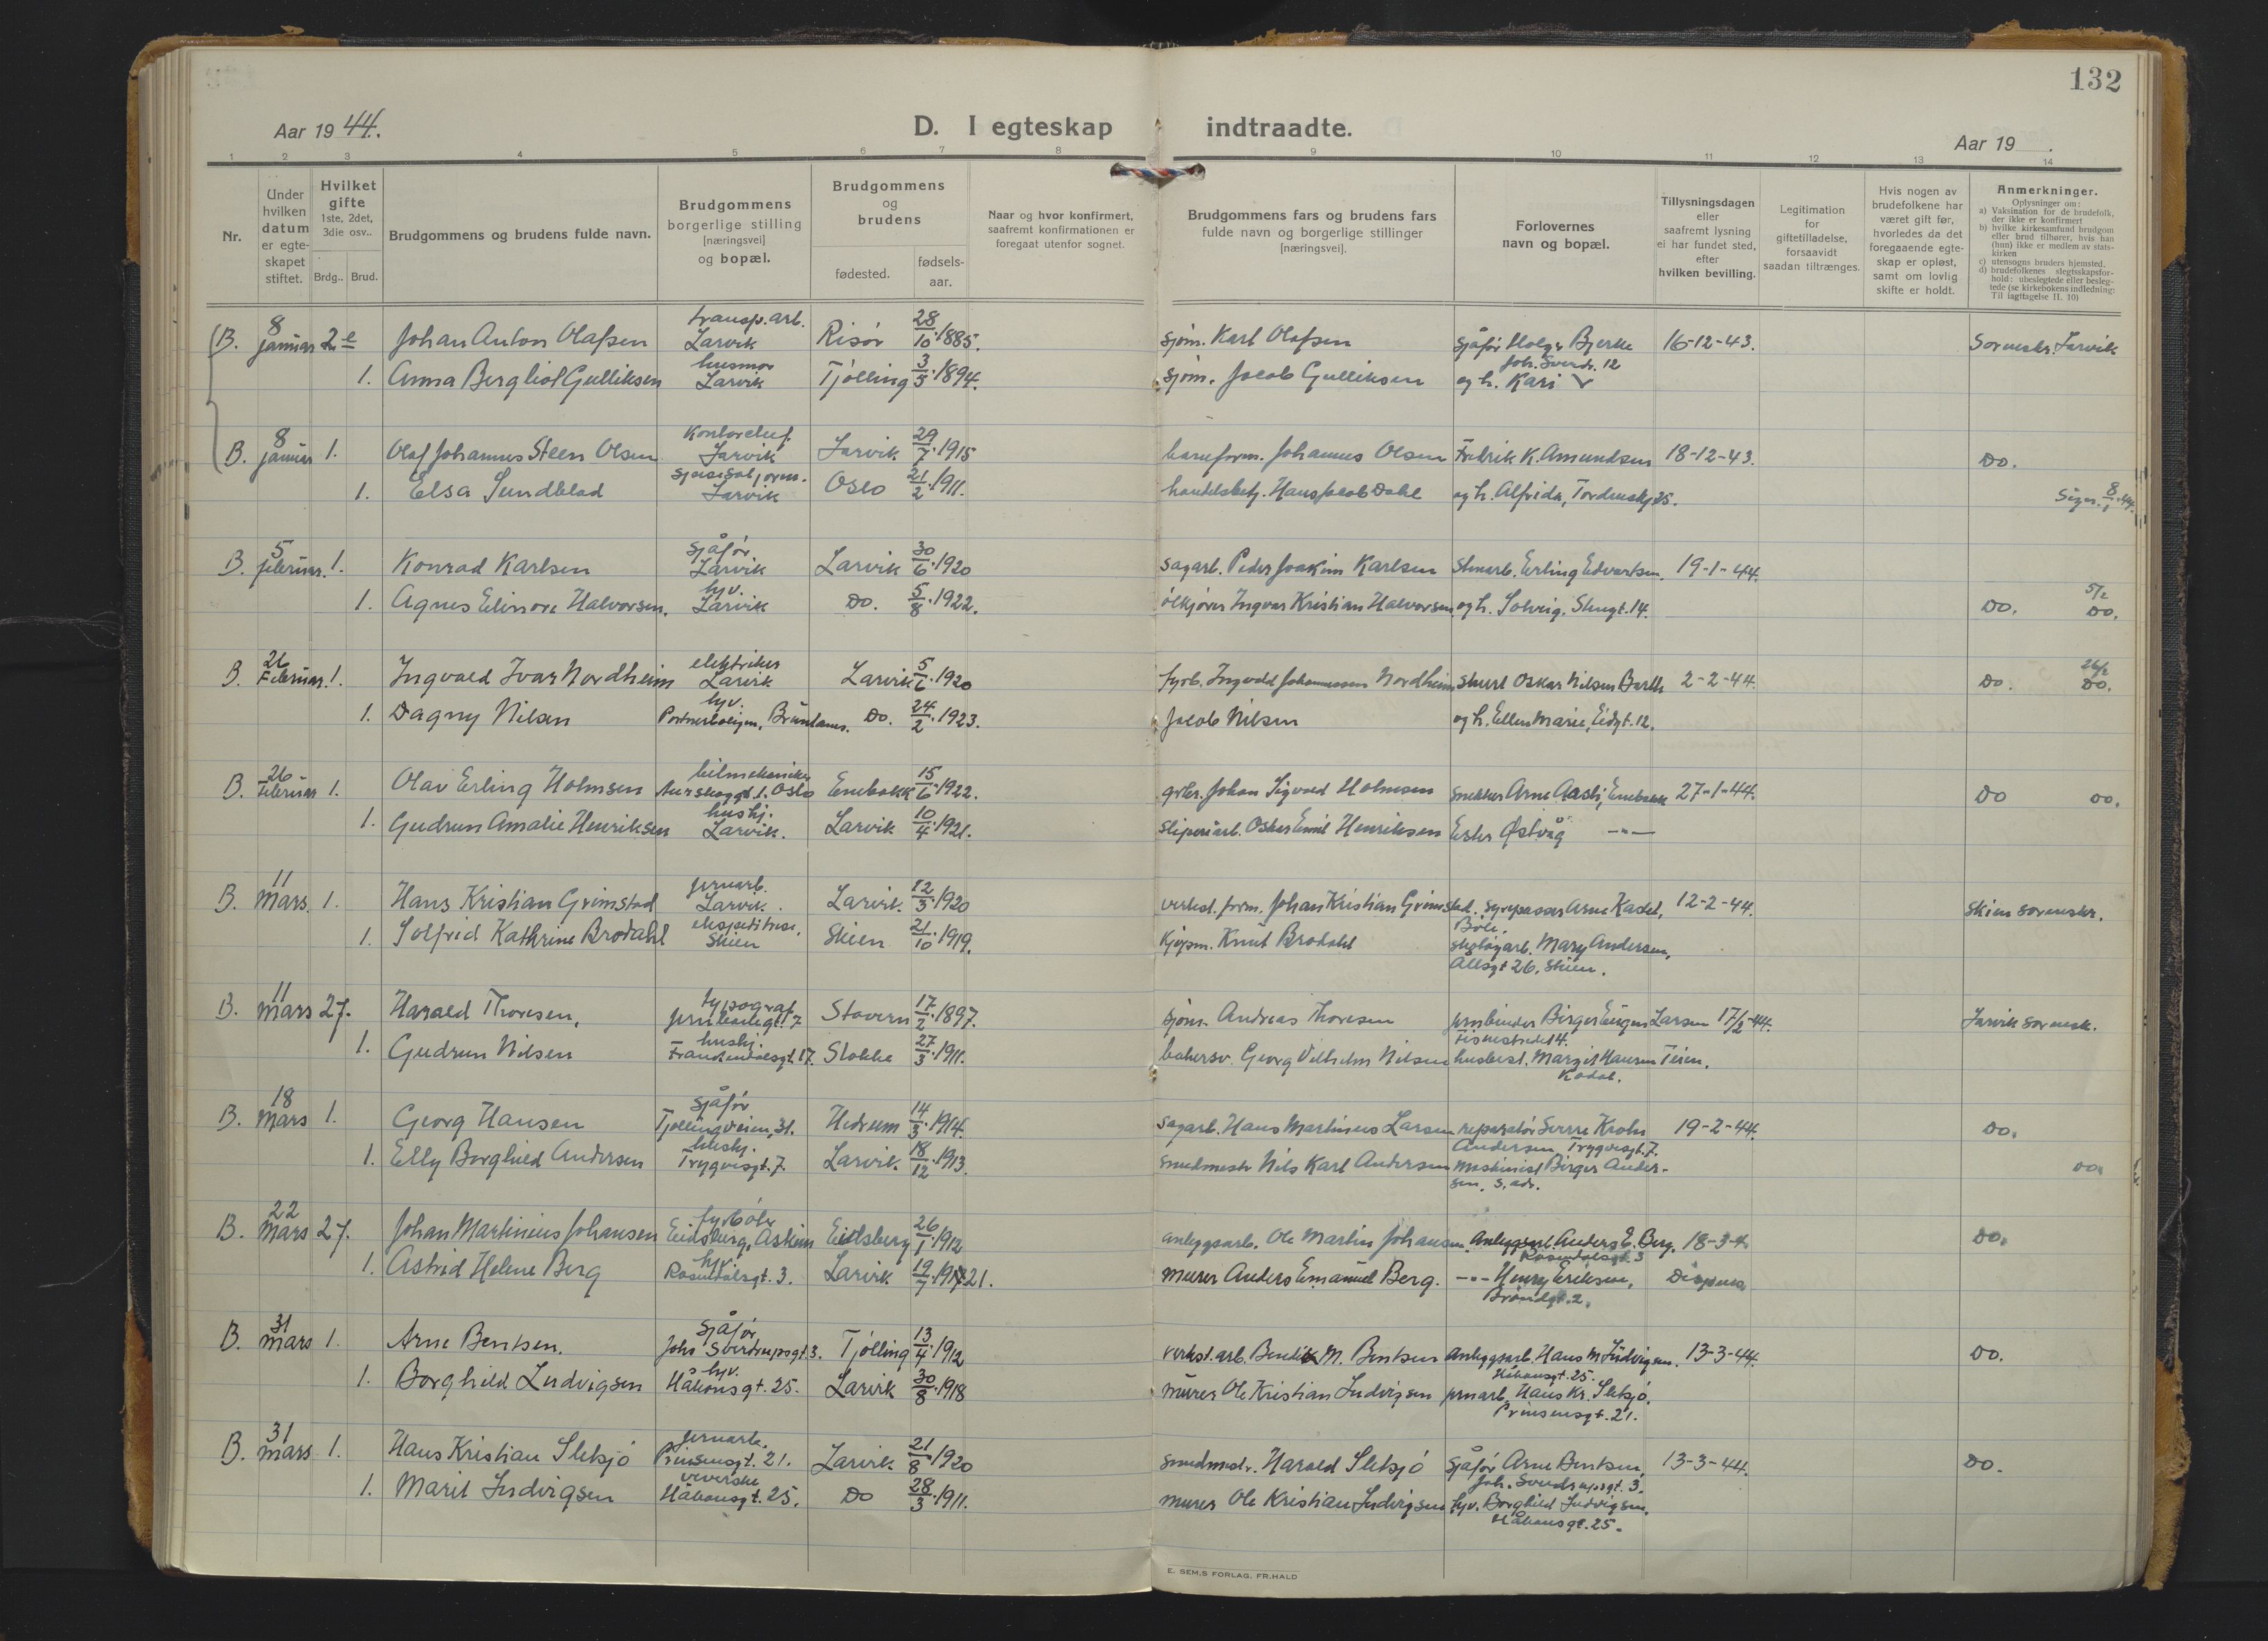 132
Aar 1944.
D. I egteskap indtraadte.
Aar 19 .
1 2 3 4 5 6 7 8 9 10 11 12 13 14
Nr.
Under hvilken datum er egteskapet stiftet.
Hvilket gifte 1ste, 2det, 3die osv..
Brdg.. Brud.
Brudgommens og brudens fulde navn.
Brudgommens borgerlige stilling [næringsvei] og bopæl.
Brudgommens og brudens
fødested.
fødselsaar.
Naar og hvor konfirmert, saafremt konfirmationen er foregaat utenfor sognet.
Brudgommens fars og brudens fars fulde navn og borgerlige stillinger [næringsvei].
Forlovernes navn og bopæl.
Tillysningsdagen eller saafremt lysning ei har fundet sted, efter hvilken bevilling.
Legitimation for giftetilladelse, forsaavidt saadan tiltrænges.
Hvis nogen av brudefolkene har været gift før, hvorledes da det foregaaende egteskap er opløst, samt om lovlig skifte er holdt.
Anmerkninger.
Oplysninger om:
a) Vaksination for de brudefolk, der ikke er konfirmert
b) hvilke kirkesamfund brudgom eller brud tilhører, hvis han (hun) ikke er medlem av statskirken
c) utensogns bruders hjemsted.
d) brudefolkenes slegtsskapsforhold: ubeslegtede eller beslegtede (se kirkebokens indledning: Til iagttagelse II. 10)
B. 8 januar 2e Johan Anton Olafsen transp.arb. Larvik Risør 28/10.1885. sjøm. Karl Olafsen sjåfør Holger Bjerke 16-12-43. Sorenskr. Larvik
Joh. Sverdr. 12
1. Anna Bergliot Gulliksen husmor Larvik Tjølling 3/5.1894. sjøm. Jacob Gulliksen og h. Kari
B. 8 januar 1. Olaf Johannes Steen Olsen Kontorchef. Larvik Larvik 29/7.1915 Johannes Olsen Fredrik K. Amundsen 18-12-43. Do.
1. Elsa Sundblad Larvik Oslo 21/2.1911. Hans Jacob Dahl og h. Alfrida, Tordenskj. 25. 8/1.44.
B. 5 februar. 1. Konrad Karlsen sjåfør Larvik Larvik 30/6.1920 sagarb. Peder Joakim Karlsen stenarb. Erling Edvartsen. 19-1-44.
1. Agnes Elinore Halvorsen. hv. Larvik Do. 5/8.1922. ølkjører Ingvar Kristian Halvorsen og h. Solveig. Stengt. 14. Do. 5/2 Do.
B. 26 Februar. 1. Ingvald Ivar Nordheim elektriker Larvik Larvik 5/6.1920 fyrb. Ingvald Johannessen Nordheim Oskar Nilsen 2-2-44. Do. 26/2 Do.
1. Dagny Nilsen hv. Do. 24/2.1923. Jacob Nilsen og h. Ellen Marie, Eidgt. 12.
B. 26 Februar 1. Olav Erling Holmsen bilmekaniker Oslo Enebakk 15/6.1922. gbr. Johan Sigvard Holmsen snekker Arne Aasli, Enebakk 27-1-44. Do Do.
1. Gudrun Amalie Henriksen hushj. Larvik. Larvik 10/4.1921. sliperiarb. Oskar Emil Henriksen Ester Østvåg -"-
B. 11 Mars. 1. Hans Kristian Grimstad jernarb. Larvik. Larvik. 12/3.1920 verkst. form. Johan Kristian Grimstad. Arne Kadel, 12-2-44. Skien sorenskr.
Bøle.
1. Solfrid Kathrine Brodahl ekspeditrise. Skien Skien 21/10.1919. Kjøpm. Knut Brodahl skotøyarb. Mary Andersen,
26. Skien.
B. 11 Mars 2f. Harald Thoresen, typograf 7 Stavern 17/2.1897. sjøm. Andreas Thoresen Birger Eugen Larsen 17/2-44. Larvik sorensk.
1. Gudrun Nilsen hushj. 17. Stokke 27/3.1911. bakersv. Georg Vilhelm Nilsen husbest. Margit Hansen Teien.
Kodal.
B. 18 Mars 1. Georg Hansen sjåfør Tjøllingveien, 31. Hedrum 14/3.1914. sagarb. Hans Martinius Larsen reparatør Sverre Krohn 19-2-44. Do.
Andersen Trygvesgt. 7.
1. Elly Borghild Andersen hushj. Trygvesgt. 7. Larvik. 18/12.1913. smedmestr. Nils Karl Andersen maskinist Birger Andersen, s. adr. Do.
B. 22 Mars 2f. Johan Martinius Johansen fyrbøter Eidsberg, Askim Eidsberg 26/1.1912 anleggsarb. Ole Martin Johansen. Anleggsarb. Anders E. Berg. 18-3-4 Do.
Rosendalsgt. 3
1. Astrid Helene Berg hv. Rosendalsgt. 3. Larvik 19/7.1921. murer Anders Emanuel Berg. -"- Henry Eriksen, Dispens.
Brandgt. 2.
B. 31 Mars 1. Arne Bentsen. sjåfør Johs Sverdrupsgt 3. Tjølling 13/4.1912 verkst.arb. Bendik M. Bentsen anleggsarb. Hans M Ludvigsen. 13-3-44. Do.
Håkonsgt. 25.
1. Borghild Ludvigsen hv. Håkonsgt. 25. Larvik 30/8.1918 murer Ole Kristian Ludvigsen jernarb. Hans Kr. Sletsjø.
Prinsensgt. 21.
B. 31 Mars 1. Hans Kristian Sletsjø jernarb. Prinsensgt. 21. Larvik 21/8.1920 smedmstr. Harald Sletsjø sjåfør Arne Bentsen, 13-3-44. Do.
Joh. Sverdrupsgt. 3.
1. Marit Ludvigsen veverske Håkonsgt. 25. Do 28/3.1911. murer Ole Kristian Ludvigsen hv. Borghild Ludvigsen,
Håkonsgt. 25.
E. SEM.S FORLAG, FR.HALD